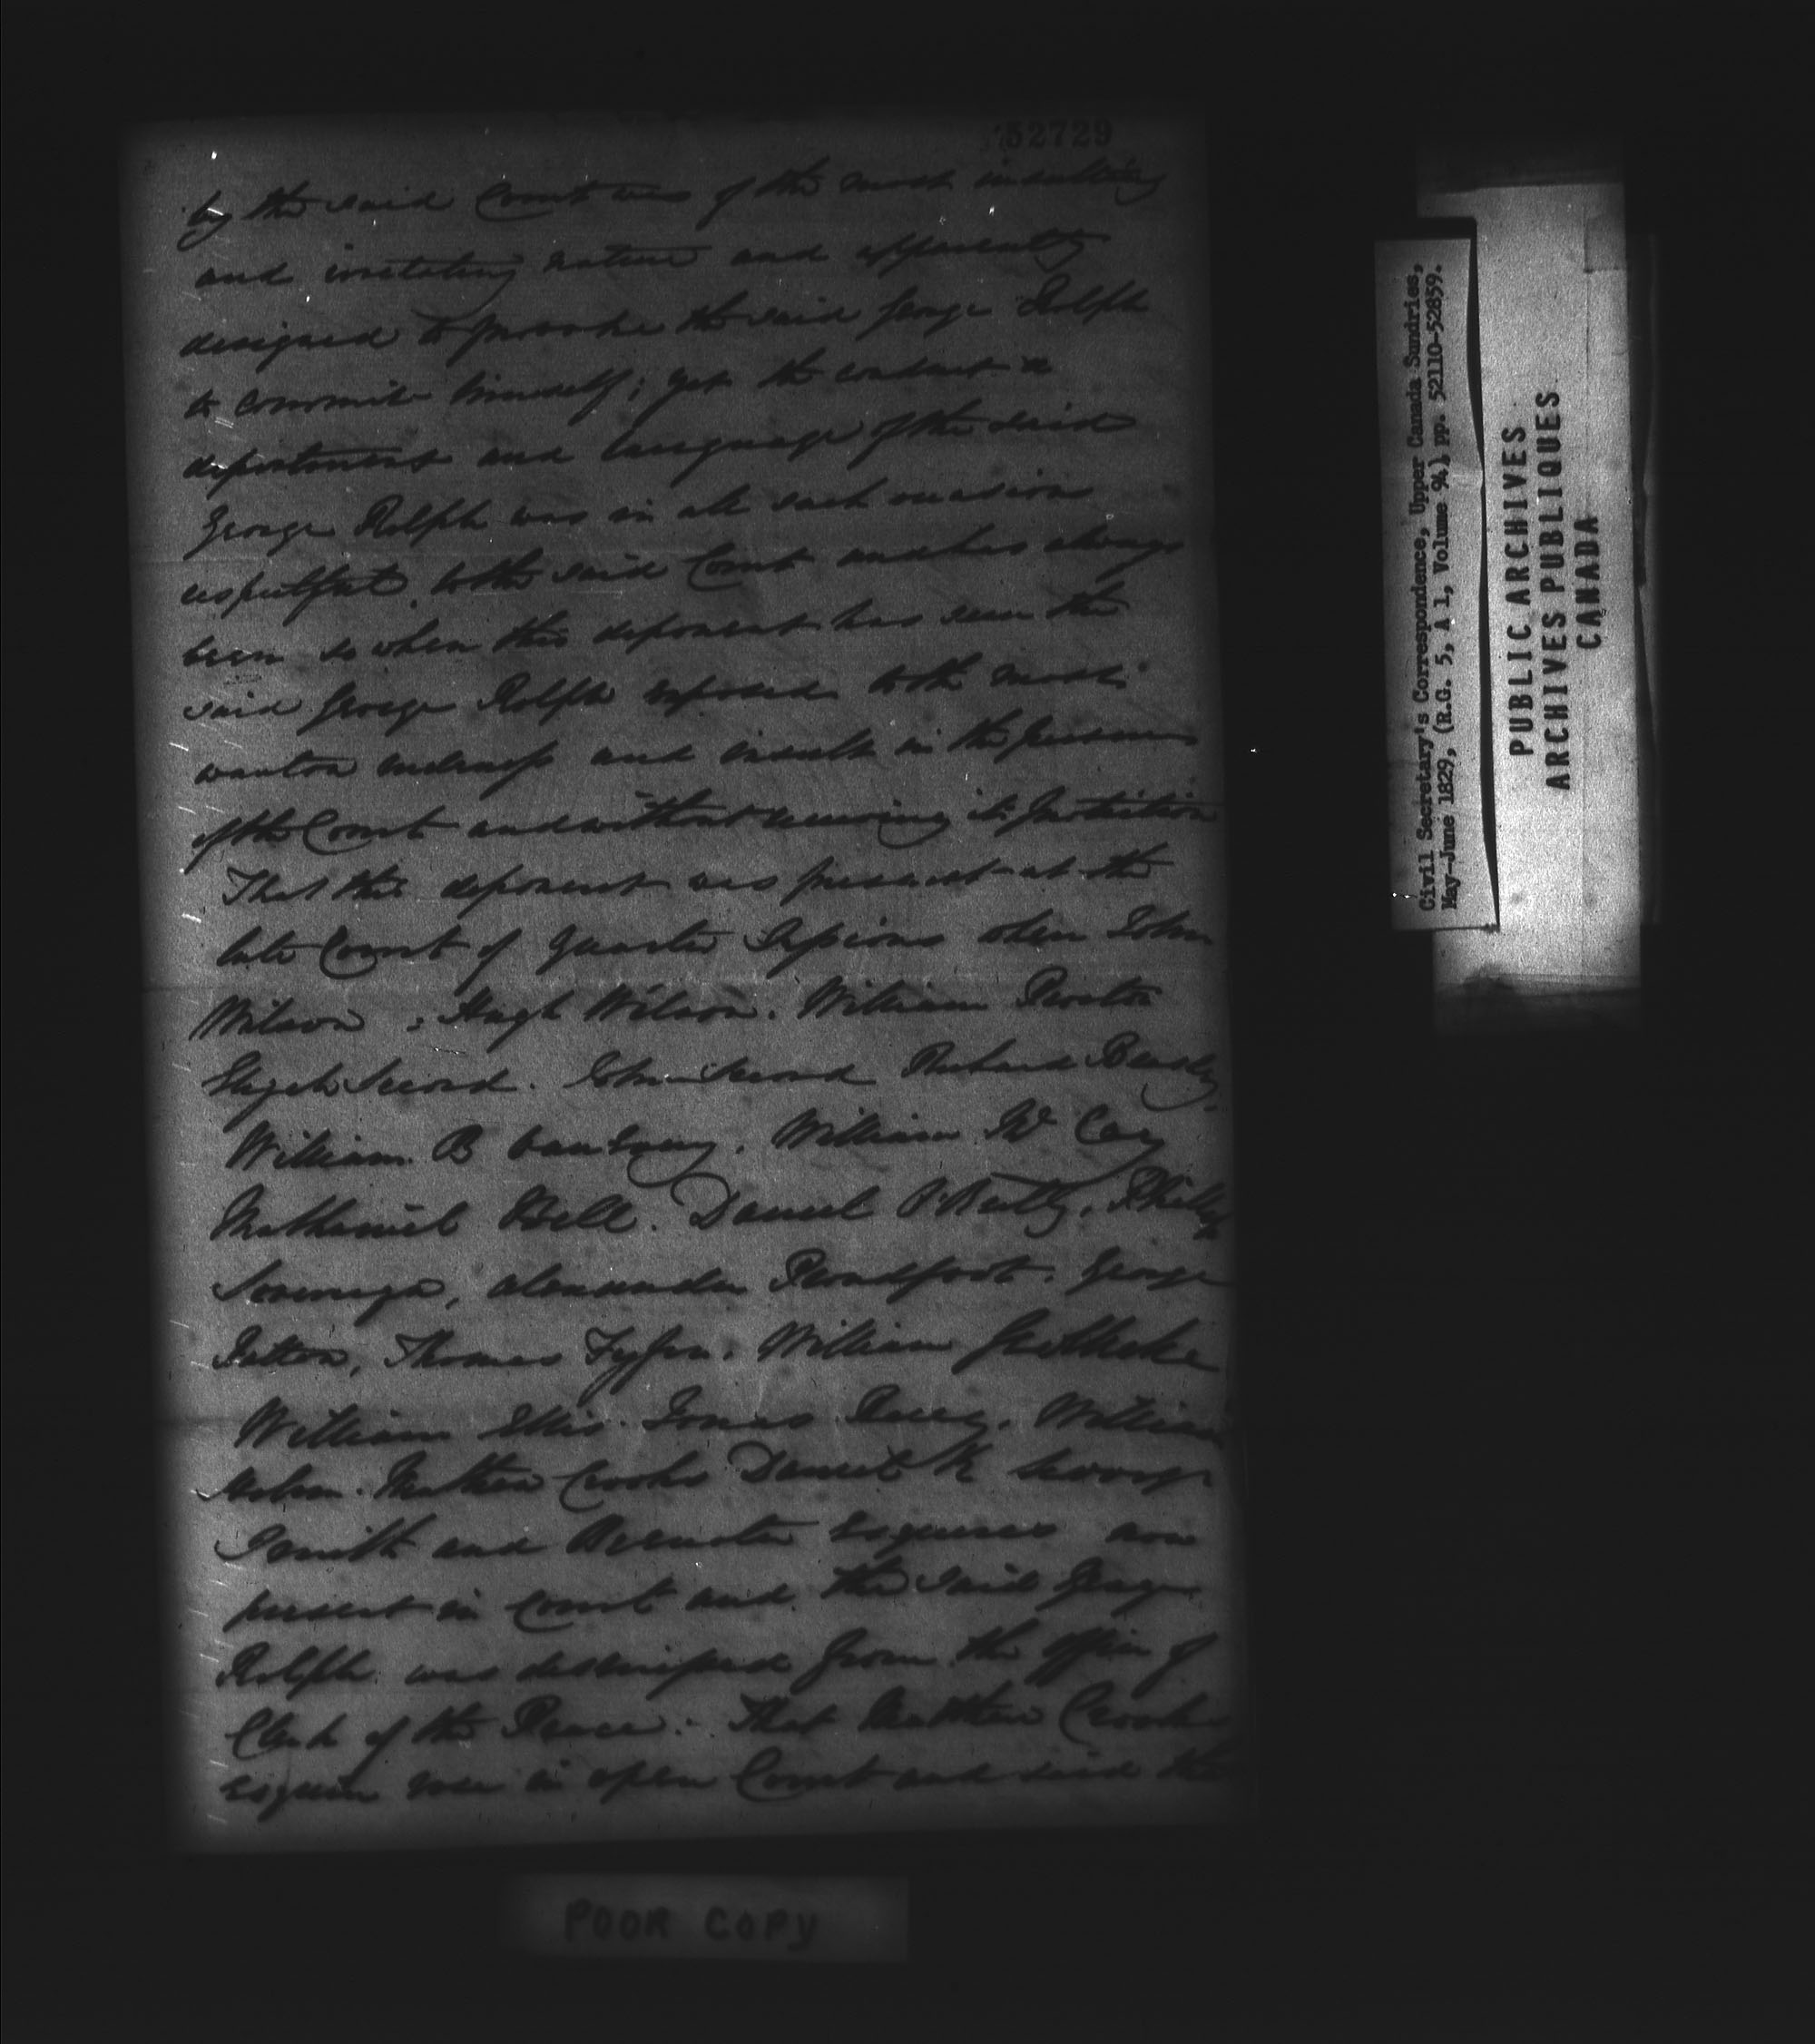 52729
by the said Court was of the most insulting
and irritating nature and apparently
designed to provoke the said George Rolph
to commit himself; yet the conduct
deportment and language of the said
George Rolph was in all such occasions
respectful to the said Court and has always
been so when this deponent has seen the
said George Rolph exposed to the most
wanton and insult in the presence
of the Court and without receiving its protection
That this deponent was present at the
late Court of Quarter Sessions when John
Wilson, Hugh Wilson. William Proctor
Elijah Secord. John Secord Richard Beasley
William B vanEvery. William W Cay
Nathaniel Bell. Daniel O'Reilly, Philip
Sovereign, Alexander Proudfoot. George
Thomas Fyfe. William
William Ellis. William
Matthew Crooks Daniel K
Smith and Brewster Esquires now
present in Court and the said George
Rolph was dismissed from the office of
Clerk of the Peace. That Matthew Crooks
Esquire rose in open Court and said the
POOR COPY
Civil Secretary's Correspondence, Upper Canada Sundries,
May-June 1829, (R.G. 5, A 1, Volume 94), pp. 52110-52859.
PUBLIC ARCHIVES
ARCHIVES PUBLIQUES
CANADA